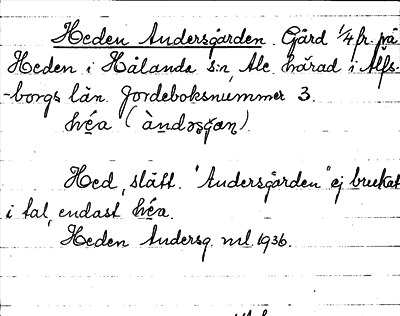 Heden Andersgården. Gård 1/4 fr. på
Heden i Hålanda s:n, Ale härad i Älfs-
-borgs län. Jordeboksnummer 3.
hé̱a (à̱ndəʂgan)

Hed, slätt. "Andersgården" ej brukat
i tal, endast hé̱a.
Heden Andersg. ml. 1936.